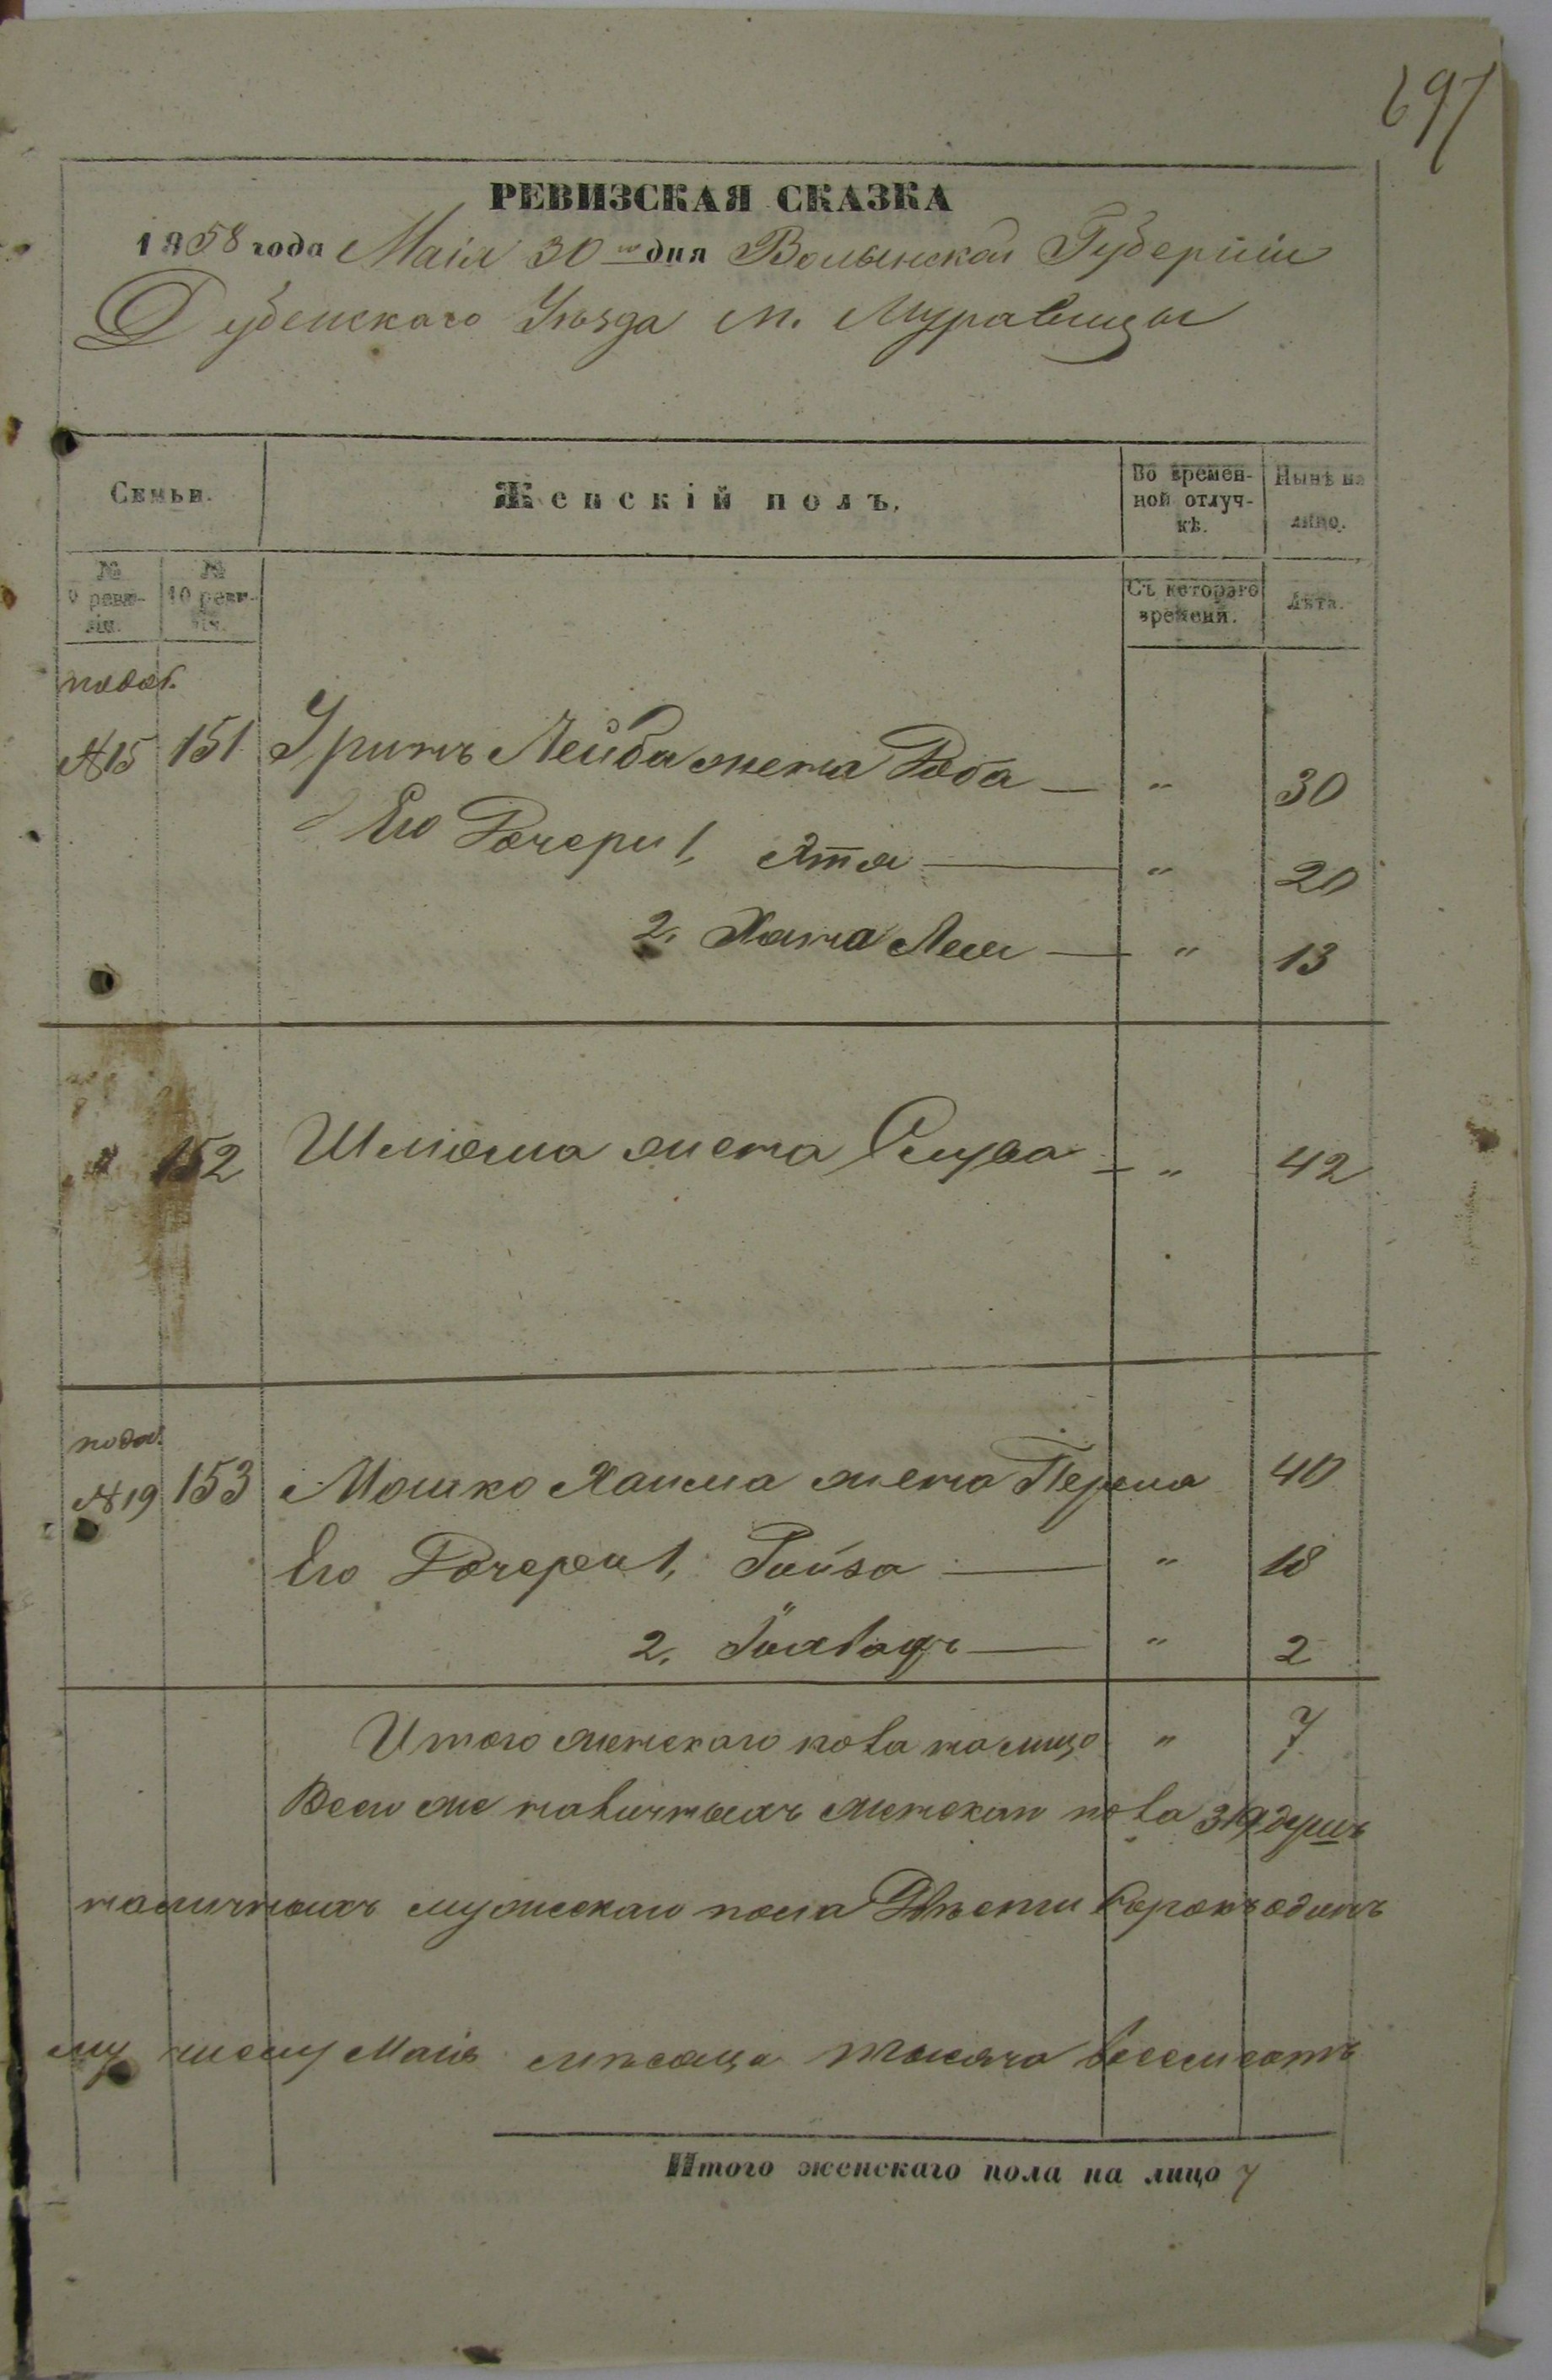 697
РЕВИЗСКАЯ СКАЗКА
1858 года Маія 30 го дня Волынской Губерніи
Дубенскаго Уѣзда м. Муравицы
Семьи.
Женскій полъ.
Во времен-
ной отлуч-
кѣ.
Нынѣ на
лицо.
№
9 реви-
зіи.
№
10 реви-
зіи.
Съ котораго
времени.
Лѣта.
подат.
№15 151 Лейба жена Доба — " 30
Его Дочери 1, — " 20
2. Хана Лея — " 13
" 152 Шліома жена — " 42
подат.
№19 153 Мошко Хаима жена Перля 40
Его Дочери 1, Ройза — " 18
2. — " 2
Итого женскаго пола налицо " 7
Всего же наличныхъ женскаго пола 319 душъ
наличныхъ мужескаго пола Двѣсти сорокъ одинъ
му числу Маія мѣсяца тысяча восемсотъ
Итого женскаго пола на лицо 7